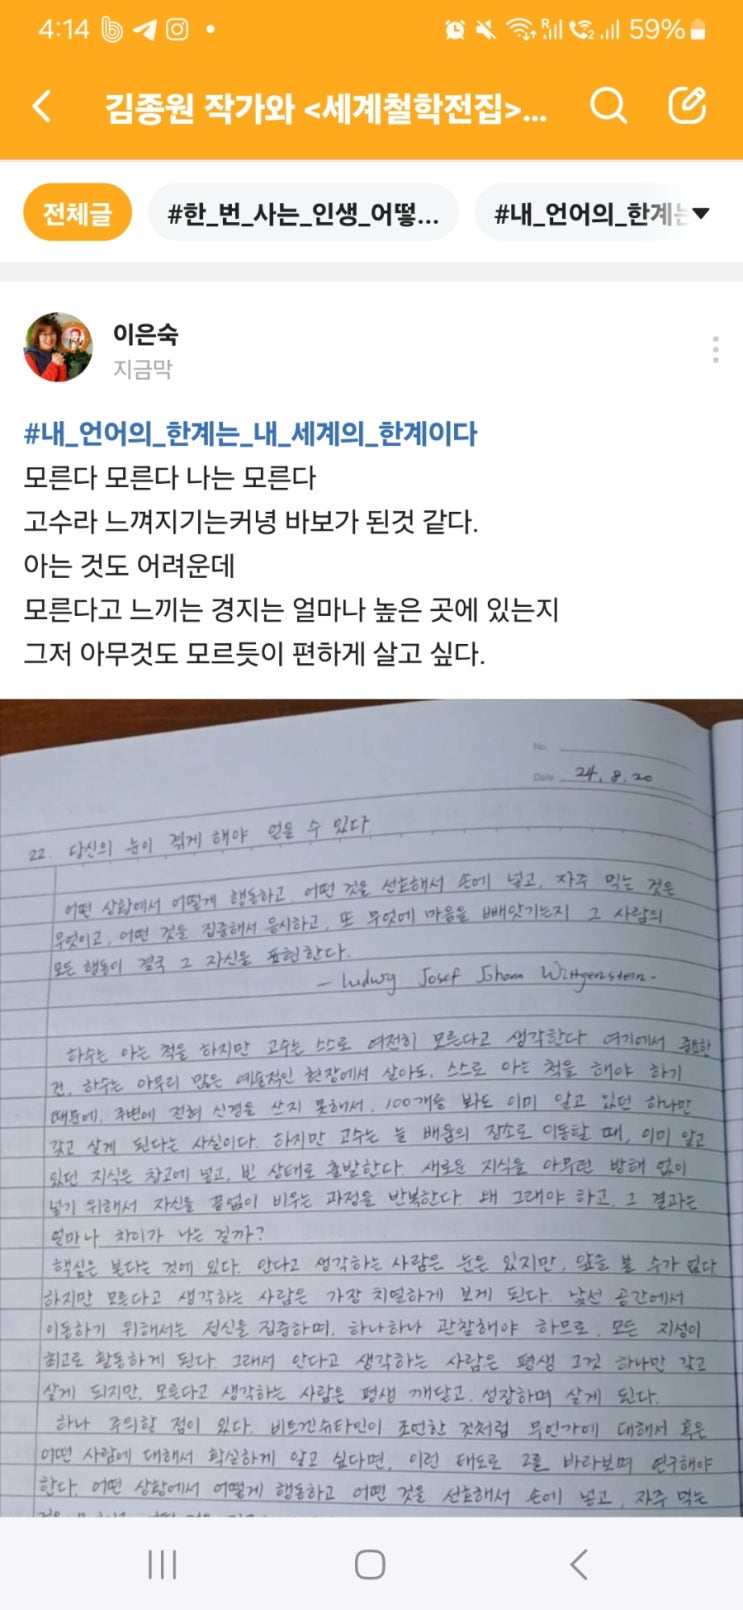 4:14
59%
김종원 작가와 <세계철학전집>...
전체글
#한_번_사는_인생_어떻...
#내_언어의_한계는
이은숙
지금막
#내_언어의_한계는_내_세계의_한계이다
모른다 모른다 나는 모른다
고수라 느껴지기는커녕 바보가 된것 같다.
아는 것도 어려운데
모른다고 느끼는 경지는 얼마나 높은 곳에 있는지
그저 아무것도 모르듯이 편하게 살고 싶다.
No.
Date 24. 8. 20
22. 당신의 눈이 겪게 해야 얻을 수 있다
어떤 상황에서 어떻게 행동하고, 어떤 것을 선호해서 손에 넣고, 자주 먹는 것은
무엇이고, 어떤 것을 집중해서 응시하고, 또 무엇에 마음을 빼앗기는지 그 사람의
모든 행동이 결국 그 자신을 표현한다.
- Ludwig Josef Johann Wittgenstein -
하수는 아는 척을 하지만 고수는 스스로 여전히 모른다고 생각한다. 여기에서 중요한
건, 하수는 아무리 많은 예술적인 현장에서 살아도, 스스로 아는 척을 해야 하기
때문에, 주변에 전혀 신경을 쓰지 못해서, 100개를 봐도 이미 알고 있던 하나만
갖고 살게 된다는 사실이다. 하지만 고수는 늘 배움의 장소로 이동할 때, 이미 알고
있던 지식은 창고에 넣고, 빈 상태로 출발한다. 새로운 지식을 아무런 방해 없이
넣기 위해서 자신을 끝없이 비우는 과정을 반복한다. 왜 그래야 하고, 그 결과는
얼마나 차이가 나는 걸까?
핵심은 본다는 것에 있다. 안다고 생각하는 사람은 눈은 있지만, 앞을 볼 수가 없다
하지만 모른다고 생각하는 사람은 가장 치열하게 보게 된다. 낯선 공간에서
이동하기 위해서는 정신을 집중하며, 하나하나 관찰해야 하므로, 모든 지성이
최고로 활동하게 된다. 그래서 안다고 생각하는 사람은 평생 그것 하나만 갖고
살게 되지만, 모른다고 생각하는 사람은 평생 깨닫고, 성장하며 살게 된다.
하나 주의할 점이 있다. 비트겐슈타인이 조언한 것처럼 무언가에 대해서 혹은
어떤 사람에 대해서 확실하게 알고 싶다면, 이런 태도로 그를 바라보며 연구해야
한다. 어떤 상황에서 어떻게 행동하고 어떤 것을 선호해서 손에 넣고, 자주 먹는